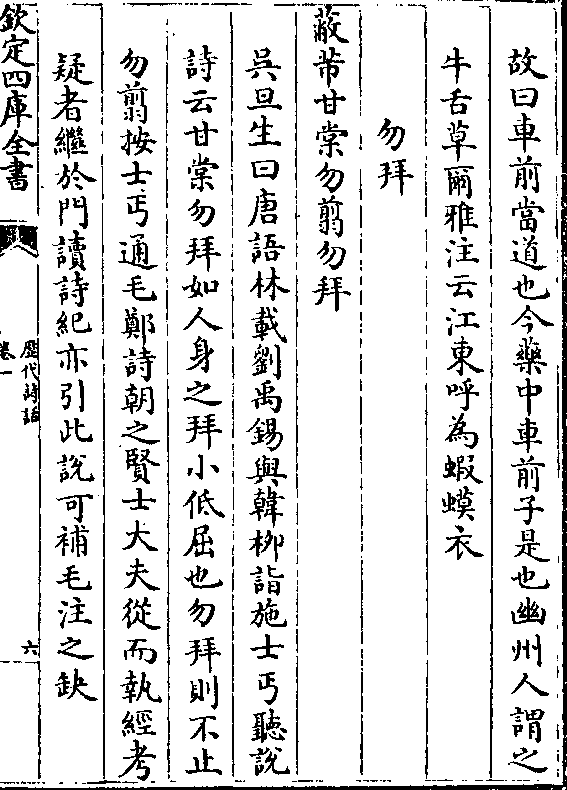 故曰車前當道也今藥中車前子是也幽州人謂之
牛舌草爾雅注云江東呼為蝦蟆衣
勿拜
蔽芾甘棠勿翦勿拜
吳旦生曰唐語林載劉禹錫與韓栁詣施士丐聽說
詩云甘棠勿拜如人身之拜小低屈也勿拜則不止
勿翦按士丐通毛鄭詩朝之賢士大夫從而執經考
疑者繼於門讀詩紀亦引此說可補毛注之缺
欽定四庫全書
歷代詩話
卷一
六